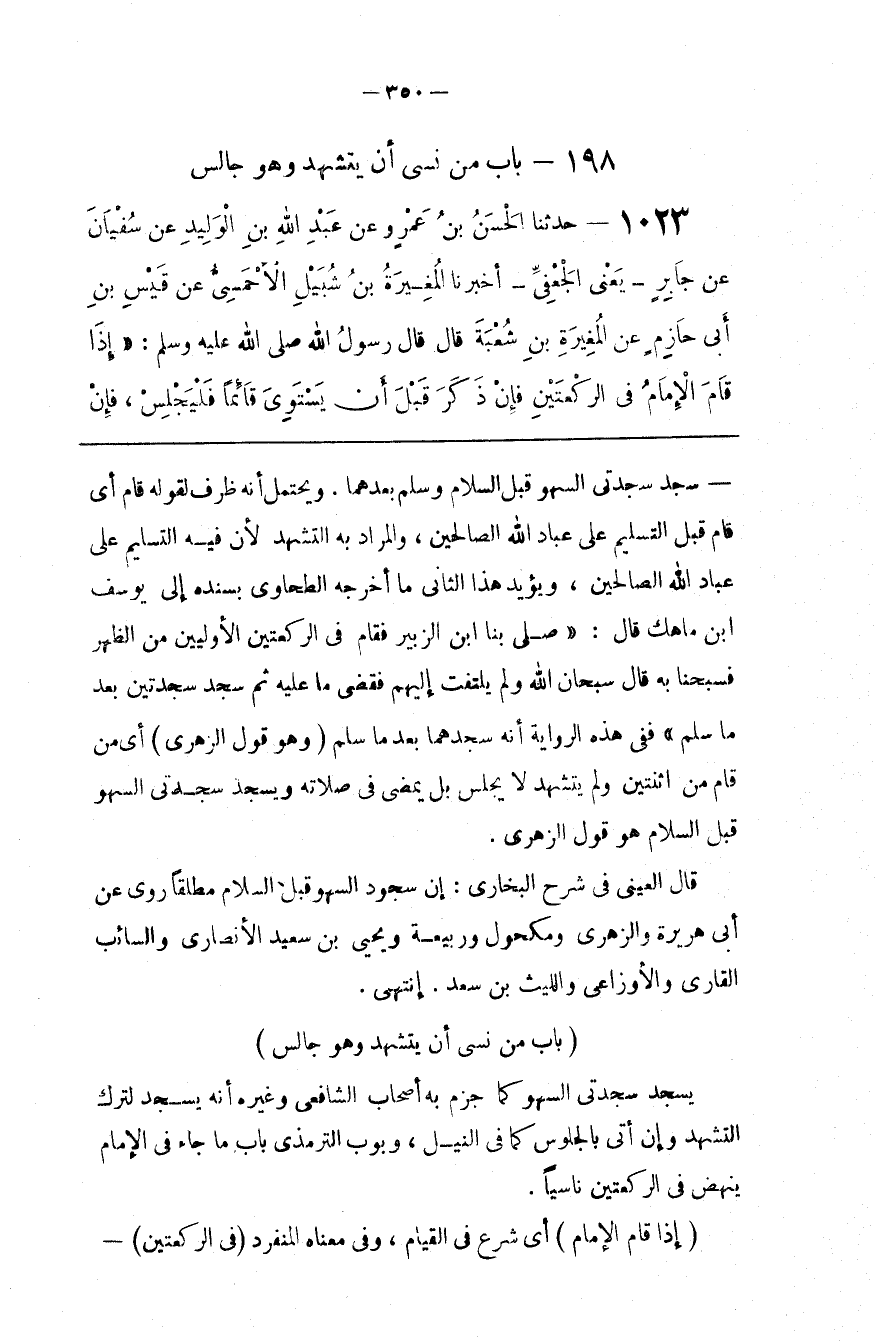 — ٣٥٠ —
١٩٨ — باب من نسى أن يتشهد وهو جالس
١٠٢٣ — حدثنا الْحَسَنُ بنُ عَمْرٍو عن عَبْدِ اللهِ بنِ الْوَلِيدِ عن سُفْيَانَ
عن جَابِرٍ - يَعْنِى الْجُعْفِىَّ - أخبرنا الْمُغِيرَةُ بنُ شُبَيْلِ الْأَحْمَسِىُّ عن قَيْسِ بنِ
أَبى حَازِمٍ عن الْمُغِيرَةِ بنِ شُعْبَةَ قال قال رسولُ الله صلى الله عليه وسلم : « إِذَا
قَامَ الْإِمَامُ فى الرَّكْعَتَيْنِ فإِنْ ذَكَرَ قَبْلَ أَن يَسْتَوِىَ قَائمًا فَلْيَجْلِسْ ، فإِنْ
— سجد سجدتى السهو قبل السلام وسلم بعدهما . ويحتمل أنه ظرف لقوله قام أى
قام قبل التسليم على عباد الله الصالحين ، والمراد به التشهد لأن فيه التسليم على
عباد الله الصالحين ، ويؤيد هذا الثانى ما أخرجه الطحاوى بسنده إلى يوسف
ابن ماهك قال : « صلى بنا ابن الزبير فقام فى الركعتين الأوليين من الظهر
فسبحنا به قال سبحان الله ولم يلتفت إليهم فقضى ما عليه ثم سجد سجدتين بعد
ما سلم » ففى هذه الرواية أنه سجدهما بعد ما سلم ( وهو قول الزهرى ) أى من
قام من اثنتين ولم يتشهد لا يجلس بل يمضى فى صلاته ويسجد سجدتى السهو
قبل السلام هو قول الزهرى .
قال العينى فى شرح البخارى : إن سجود السهو قبل السلام مطلقاً روى عن
أبى هريرة والزهرى ومكحول وربيعة ويحيى بن سعيد الأنصارى والسائب
القارى والأوزاعى والليث بن سعد . إنتهى .
( باب من نسى أن يتشهد وهو جالس )
يسجد سجدتى السهو كما جزم به أصحاب الشافعى وغيره أنه يسجد لترك
التشهد وإن أتى بالجلوس كما فى النيل ، وبوب الترمذى باب ما جاء فى الإمام
ينهض فى الركعتين ناسياً .
( إذا قام الإمام ) أى شرع فى القيام ، وفى معناه المنفرد (فى الركعتين) —